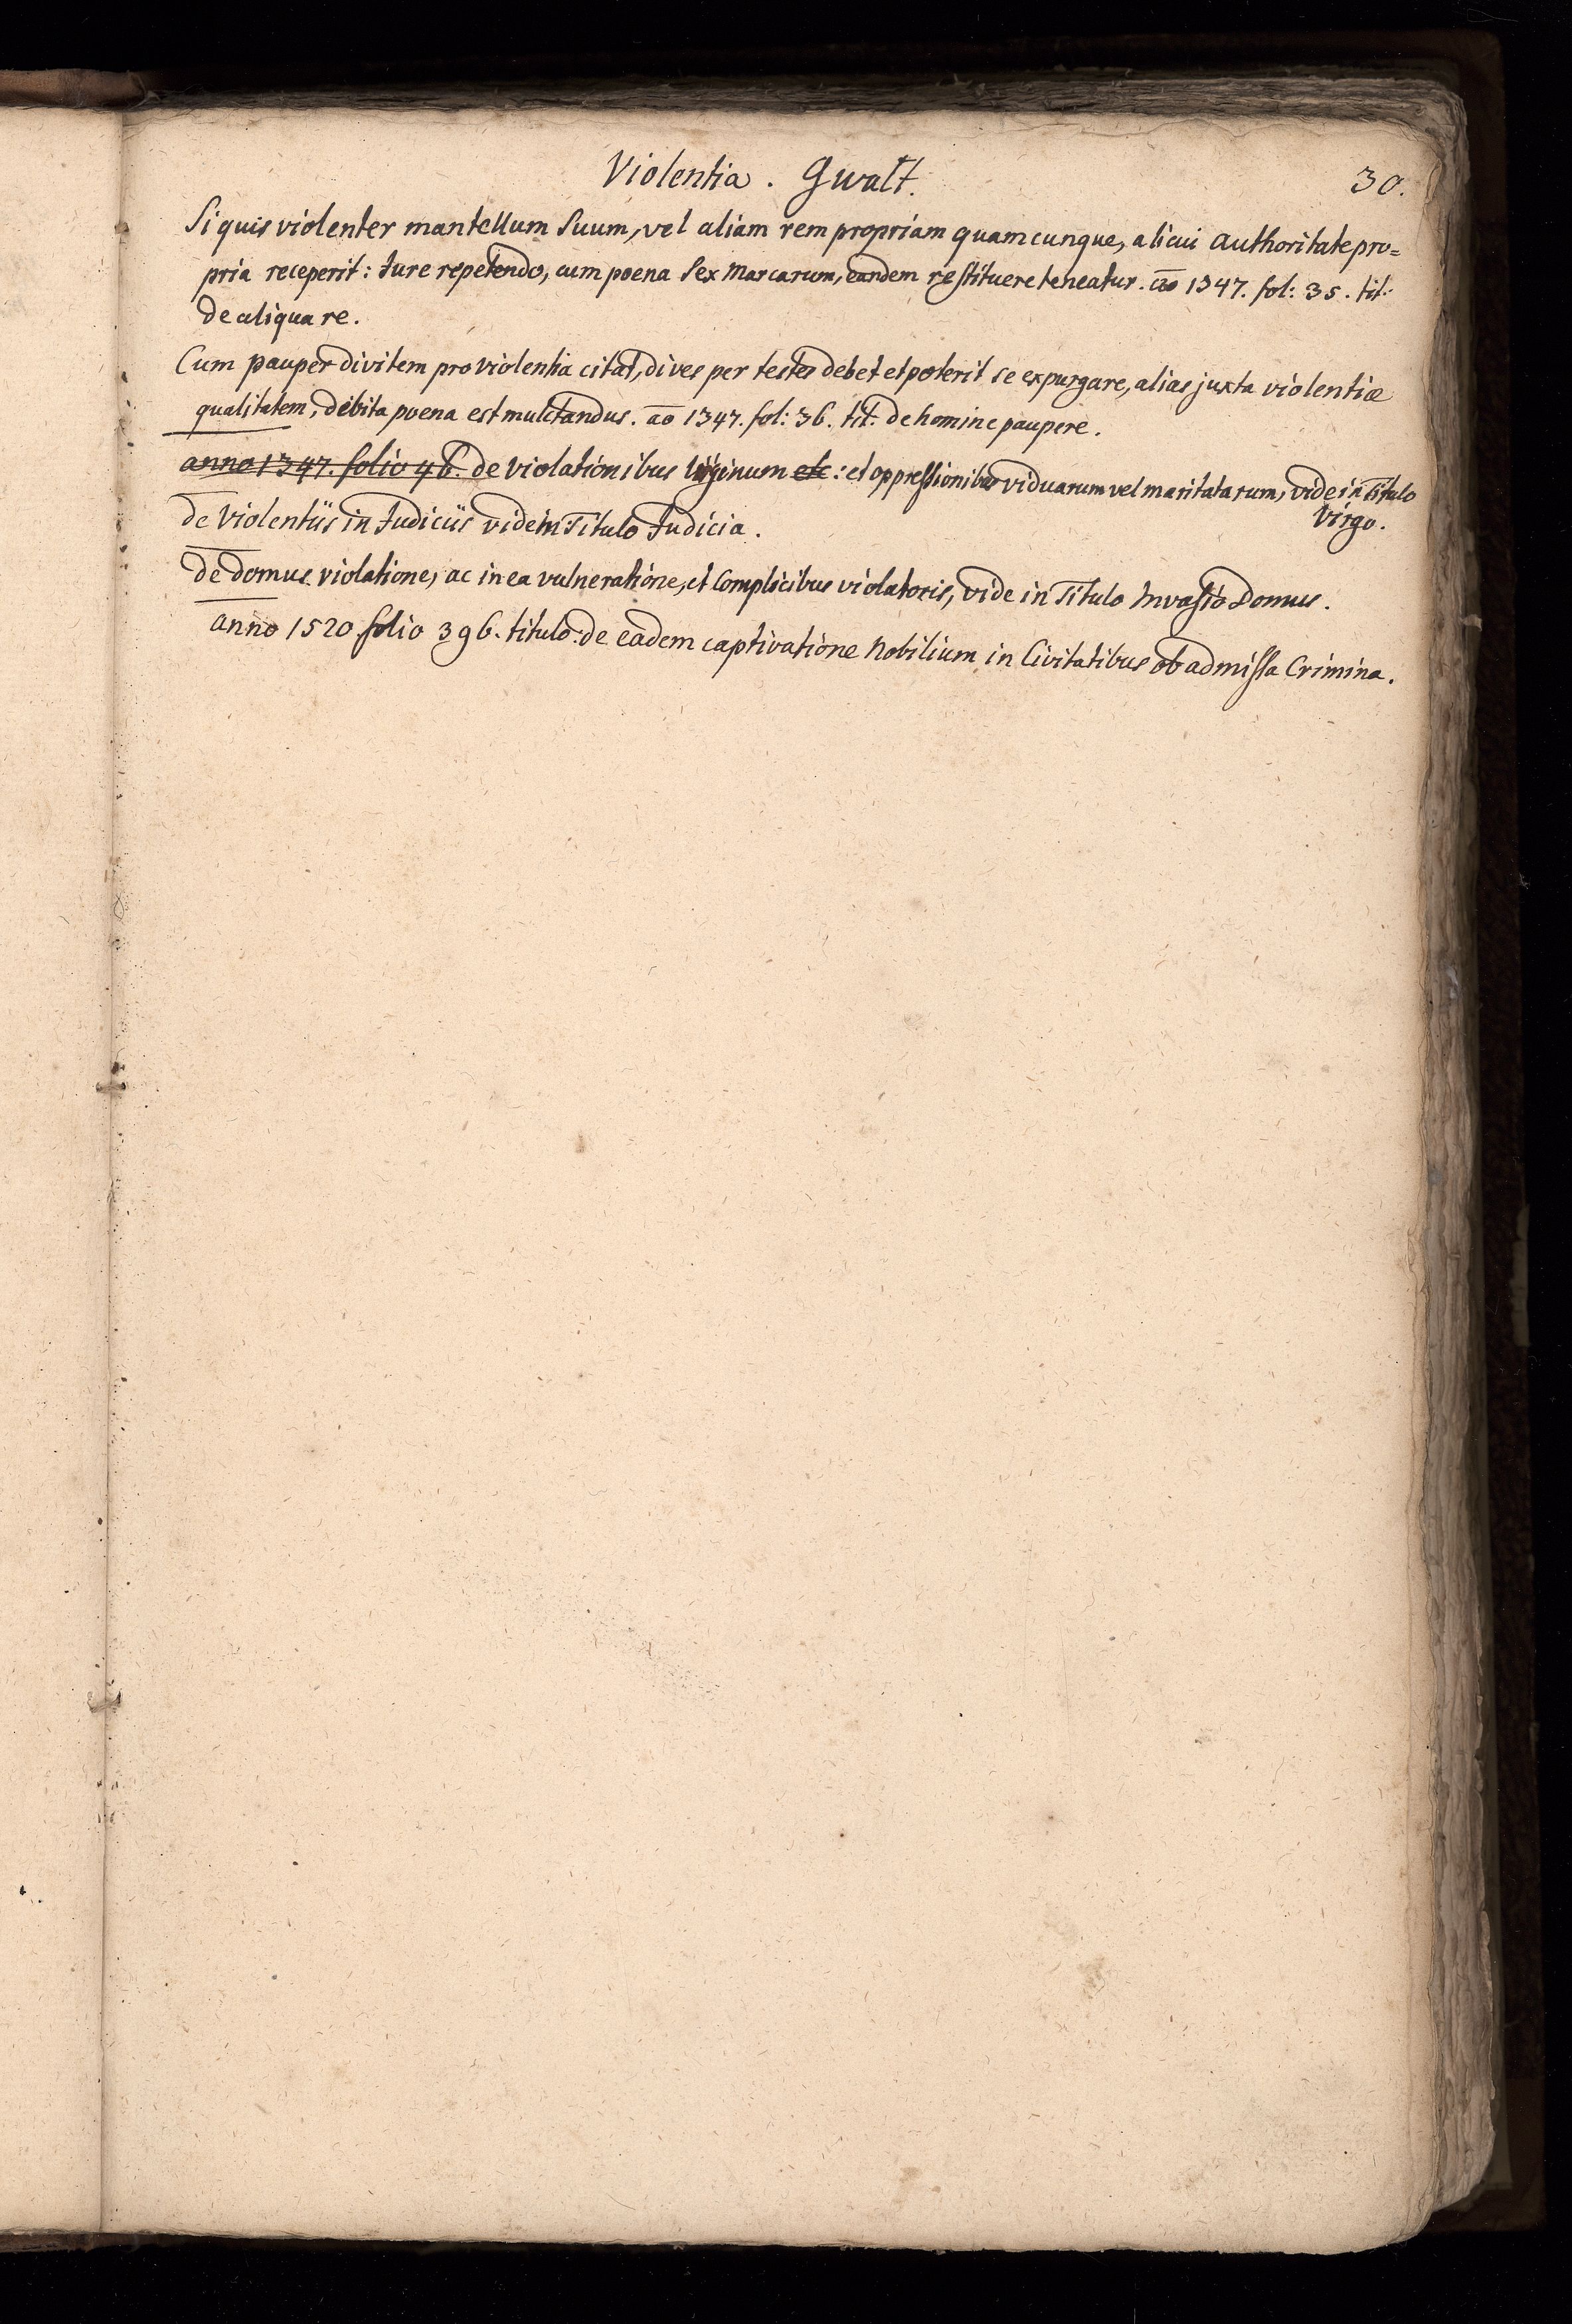 Violentia. Gwalt. 30.
Si quis violenter mantellum Suum, vel aliam rem propriam quamcunque, alicui authoritate pro=
pria receperit: Jure repetendo, cum poena Sex Marcarum, eandem restituere teneatur. ao 1347. fol: 35. tit:
de aliqua re.
Cum pauper divitem pro violentia citat, dives per testes debet et poterit se expurgare, alias juxta violentiæ
qualitatem, debita poena est mulctandus. ao 1347. fol: 36. tit: de homine paupere.
anno 1347. folio 46. de violationibus Virginum etc: et oppressionibus viduarum vel maritatarum, vide in Titulo
Virgo.
de Violentiis in Judiciis vide in Titulo Judicia.
de domus violatione, ac in ea vulneratione, et Complicibus violatoris, vide in Titulo Invasio Domus.
anno 1520. folio 396. titulo: de eadem captivatione Nobilium in Civitatibus ob admissa Crimina.